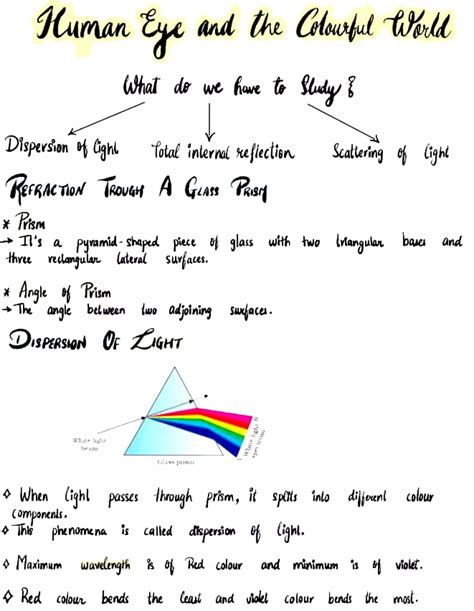 Human Eye and the Colourful World
What do we have to Study ?
Dispersion of light Total internal reflection Scattering of light
REFRACTION TROUGH A GLASS PRISM
* Prism
→ It's a pyramid-shaped piece of glass with two triangular bases and
three rectangular lateral surfaces.
* Angle of Prism
→ The angle between two adjoining surfaces.
DISPERSION OF LIGHT
White light
beam
Glass prism
White light
spectrum
◇ When light passes through prism, it splits into different colour
components.
◇ This phenomena is called dispersion of light.
◇ Maximum wavelength is of Red colour and minimum is of violet.
◇ Red colour bends the least and violet colour bends the most.